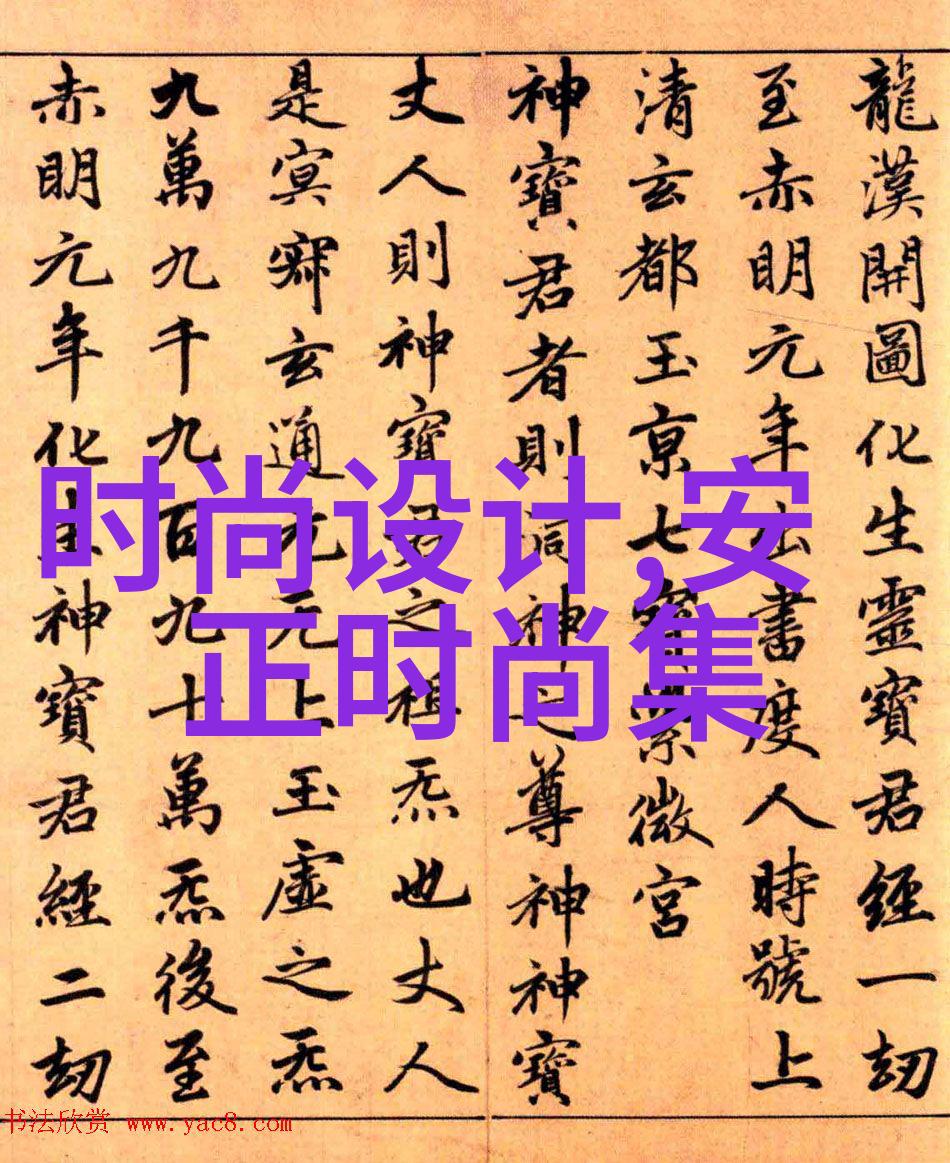 龍漢開圖化生靈寶君經一劫
至赤明元年出書度人時號上
清玄都玉京七寶紫微宮
神寶君者則洞神之尊神神寶
丈人則神寶君之稱炁也丈人
是冥寂玄通无元上玉虛之炁
九萬九千九百九十萬炁後至
赤明元年化生神寶君經二劫
时尚设计,安
正时尚集
书法欣赏 www.yac8.com